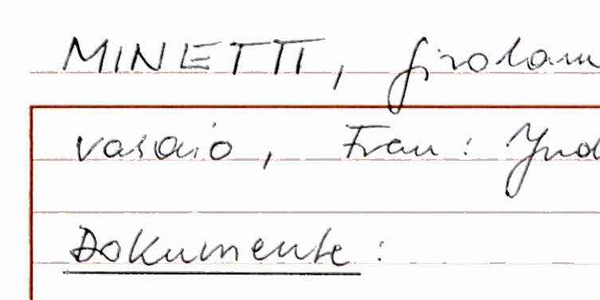 MINETTI, Girolam
vasaio, Frau: Ind
Dokumente: